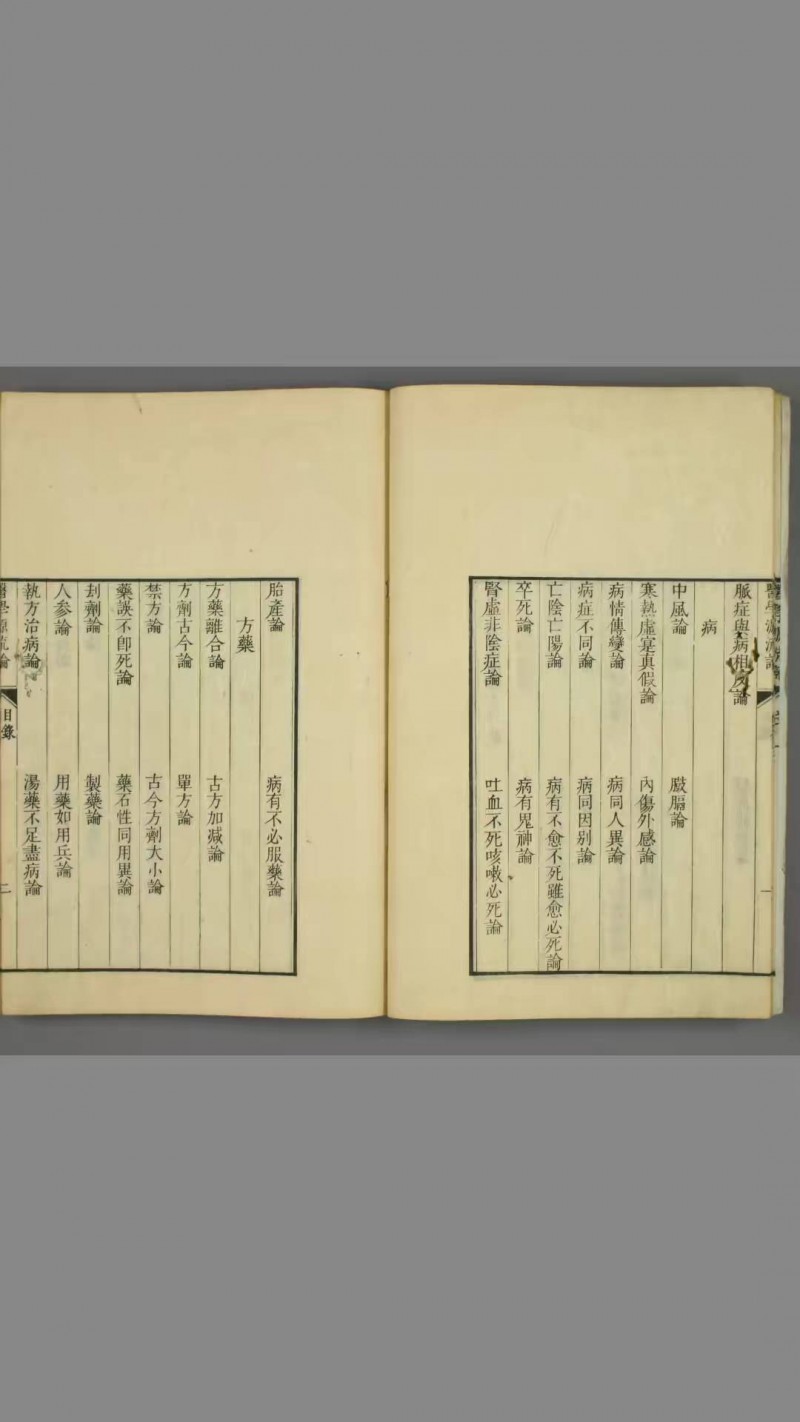 醫學源流論
脈症與病相反論
病
中風論 臌膈論
寒熱虛寔真假論 內傷外感論
病情傳變論 病同人異論
病症不同論 病同因別論
亡陰亡陽論 病有不愈不死雖愈必死論
卒死論 病有鬼神論
腎虛非陰症論 吐血不死咳嗽必死論
一
胎產論 病有不必服藥論
方藥
方藥離合論 古方加減論
方劑古今論 單方論
禁方論 古今方劑大小論
藥誤不卽死論 藥石性同用異論
刦劑論 製藥論
人參論 用藥如用兵論
執方治病論 湯藥不足盡病論
醫學源流論 目錄 二